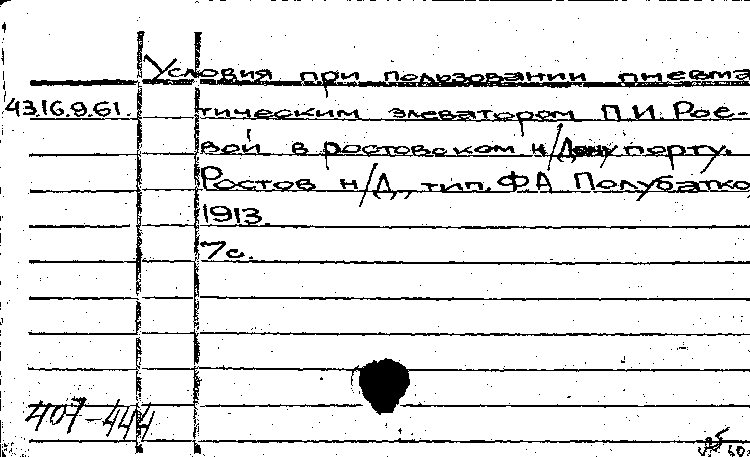 Условия при пользовании пневма
43.16.9.61. тическим элеватором П.И. Рое-
вой в ростовском н/Дону порту.
Ростов н/Д., тип. ФА Полубатко
1913.
7с.
407-444